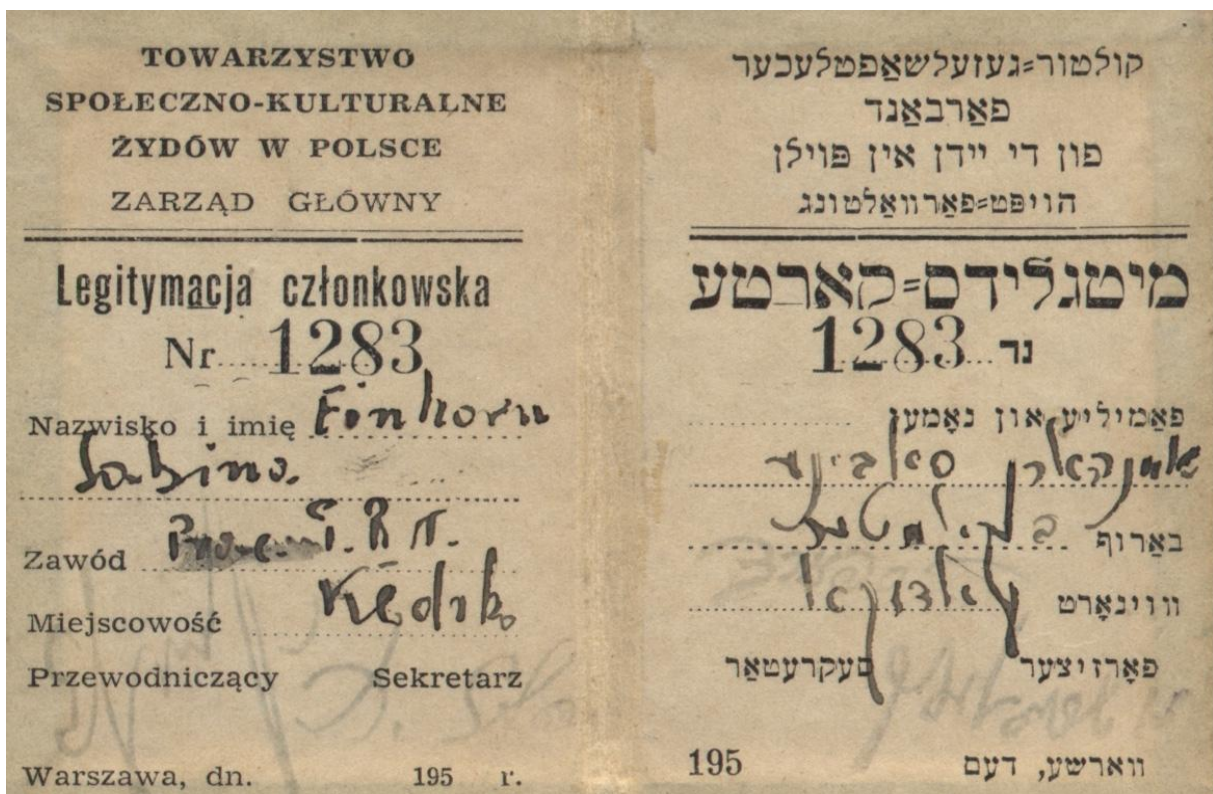 TOWARZYSTWO
SPOŁECZNO-KULTURALNE
ŻYDÓW W POLSCE
ZARZĄD GŁÓWNY
Legitymacja członkowska
Nr 1283
Nazwisko i imię Einhorn
Sabina
Zawód
Miejscowość
Przewodniczący Sekretarz
Warszawa, dn. 195 r.
קולטור-געזעלשאַפטלעכער
פאַרבאַנד
פון די יידן אין פּוילן
הויפּט-פאַרוואַלטונג
מיטגלידס-קאַרטע
נר 1283
פאַמיליע און נאָמען
באַרוף
וווינאָרט
פאָרזיצער סעקרעטאַר
וואַרשע, דעם 195